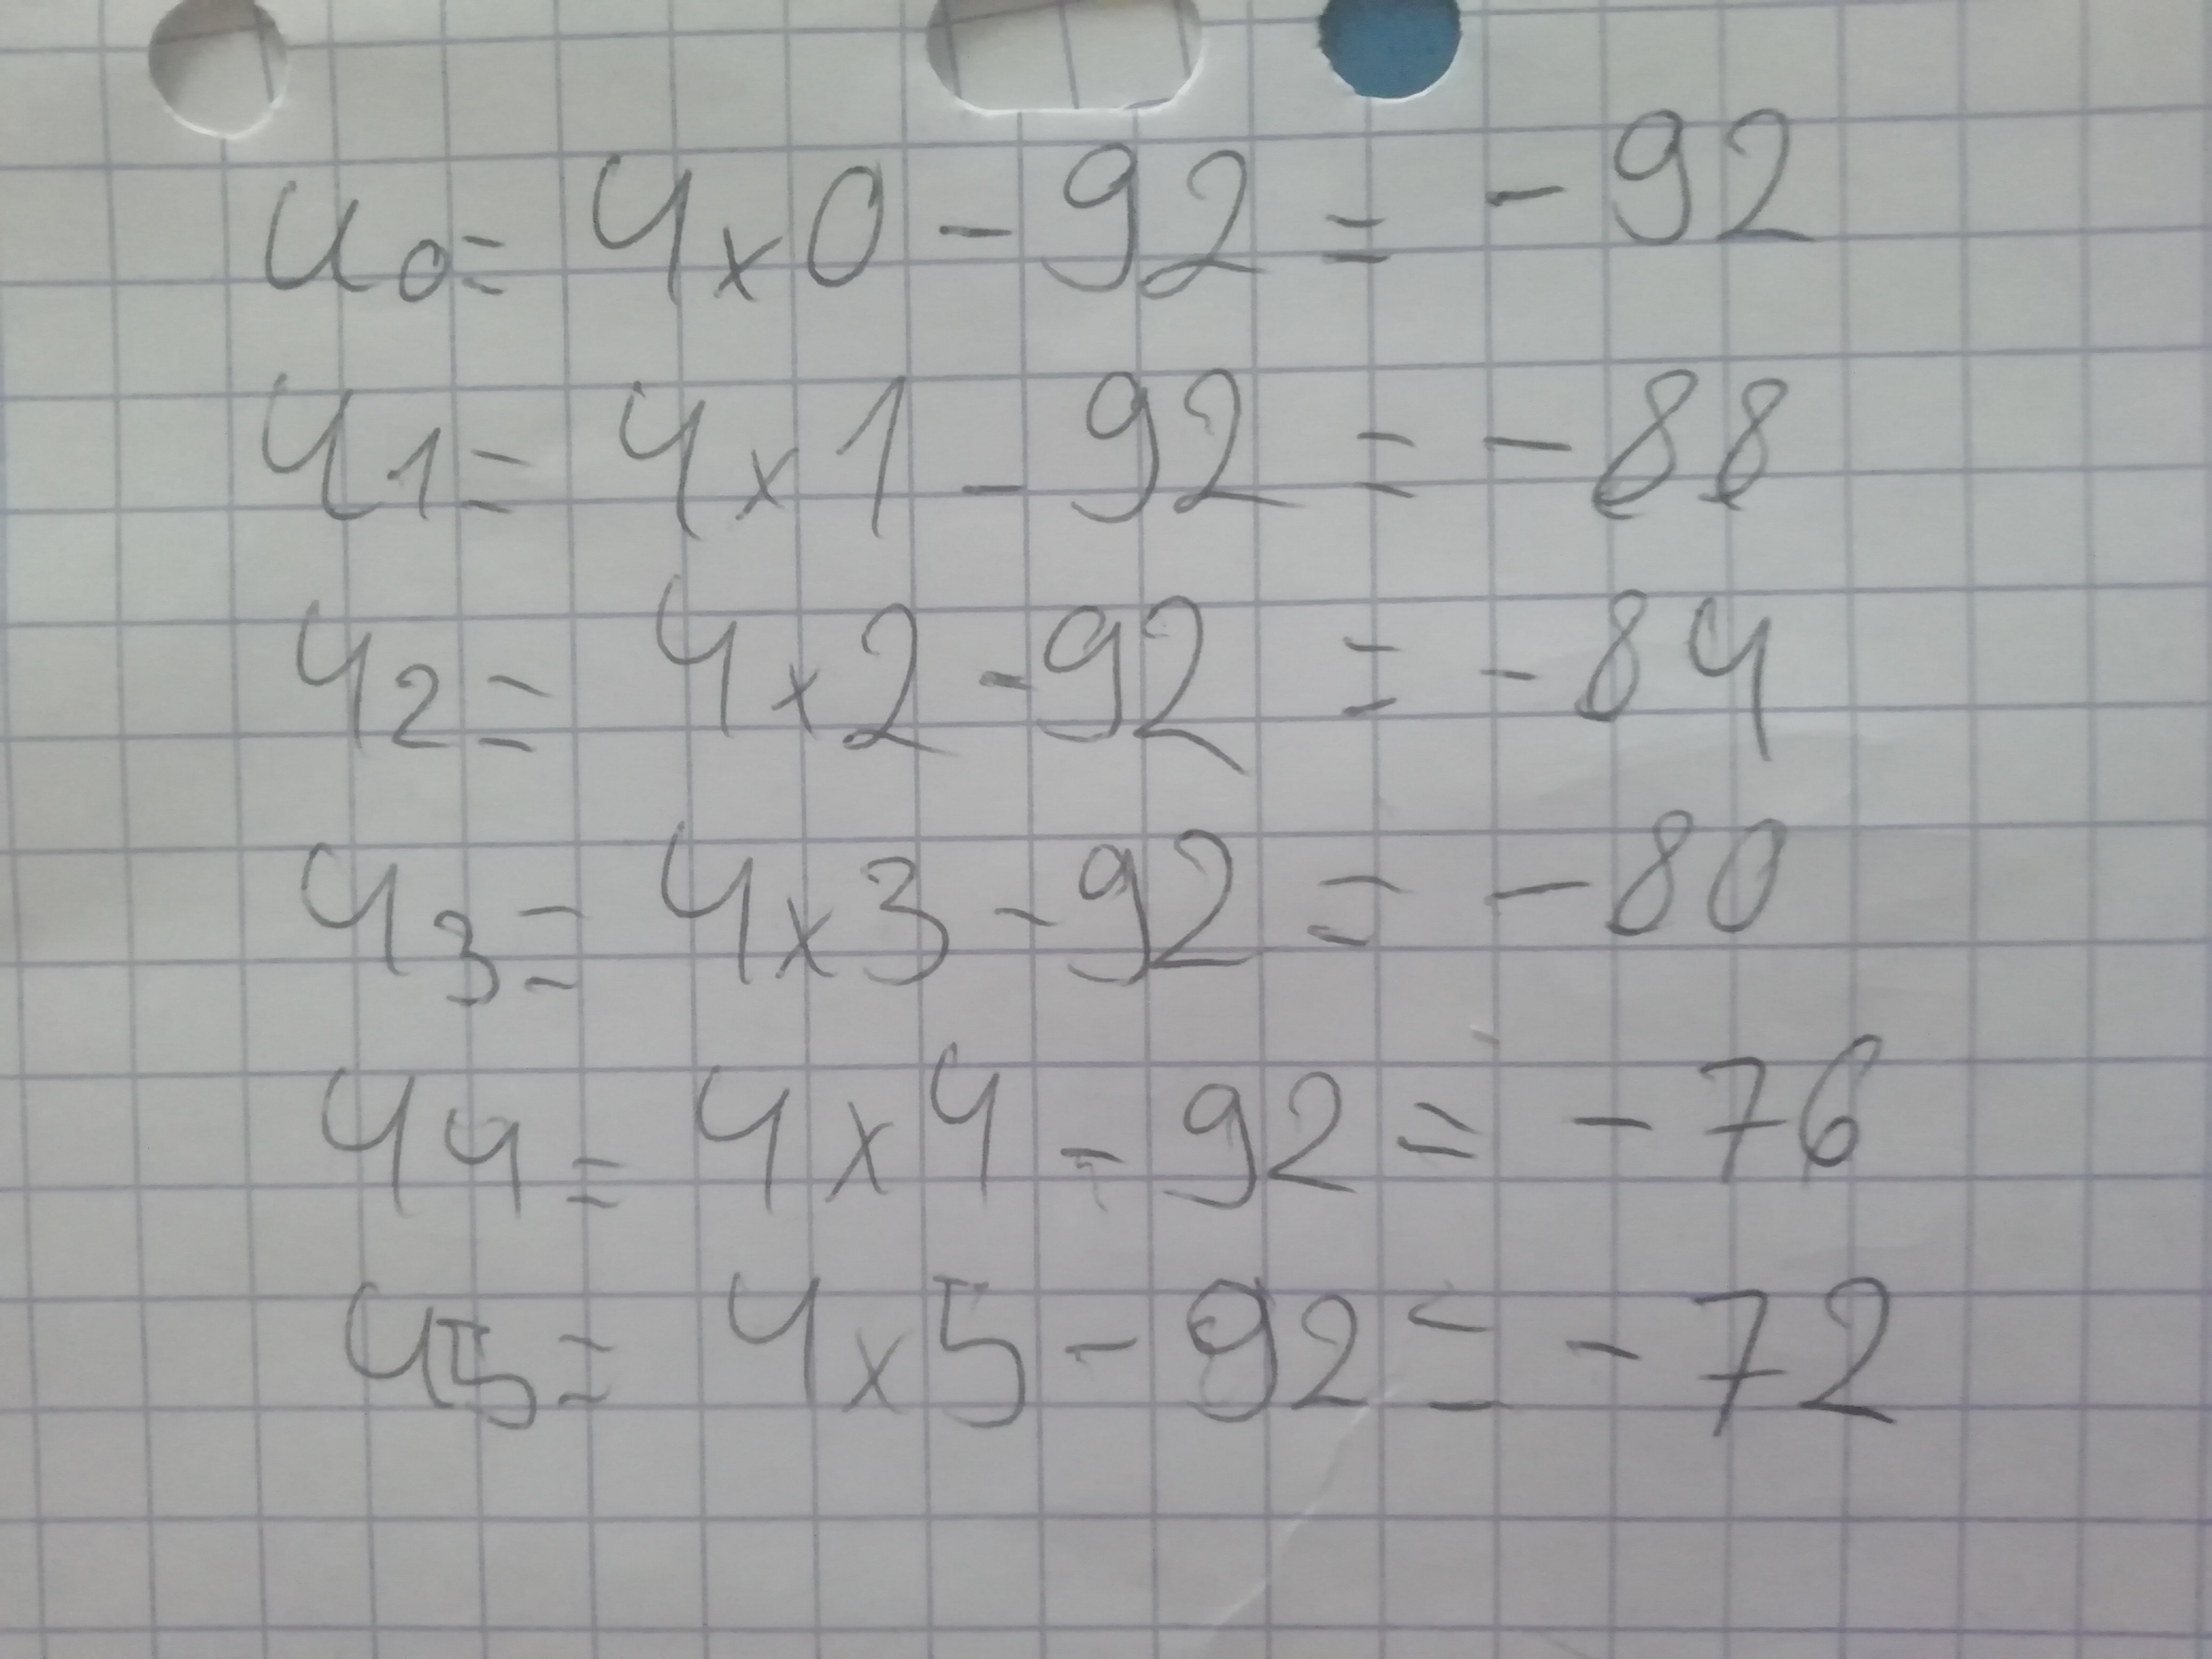 u0= 4x0-92 = -92
u1= 4x1-92 = -88
u2= 4x2-92 = -84
u3= 4x3-92 = -80
u4= 4x4-92 = -76
u5= 4x5-92 = -72